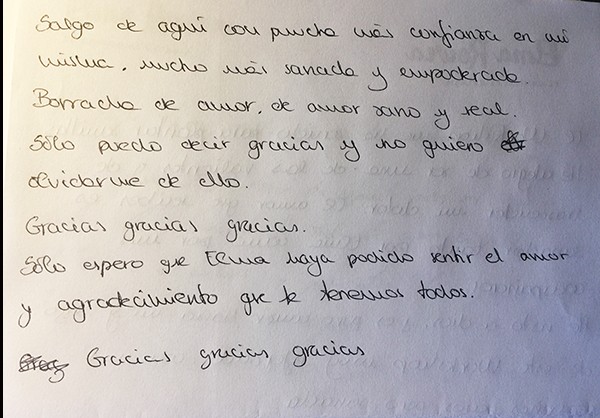 Salgo de aquí con mucha más confianza en mi
misma, mucho más sanada y empoderada.
Borracha de amor, de amor sano y real.
Sólo puedo decir gracias y no quiero
olvidarme de ello.
Gracias gracias gracias.
Sólo espero que Elma haya podido sentir el amor
y agradecimiento que le tenemos todos.
Gracias gracias gracias